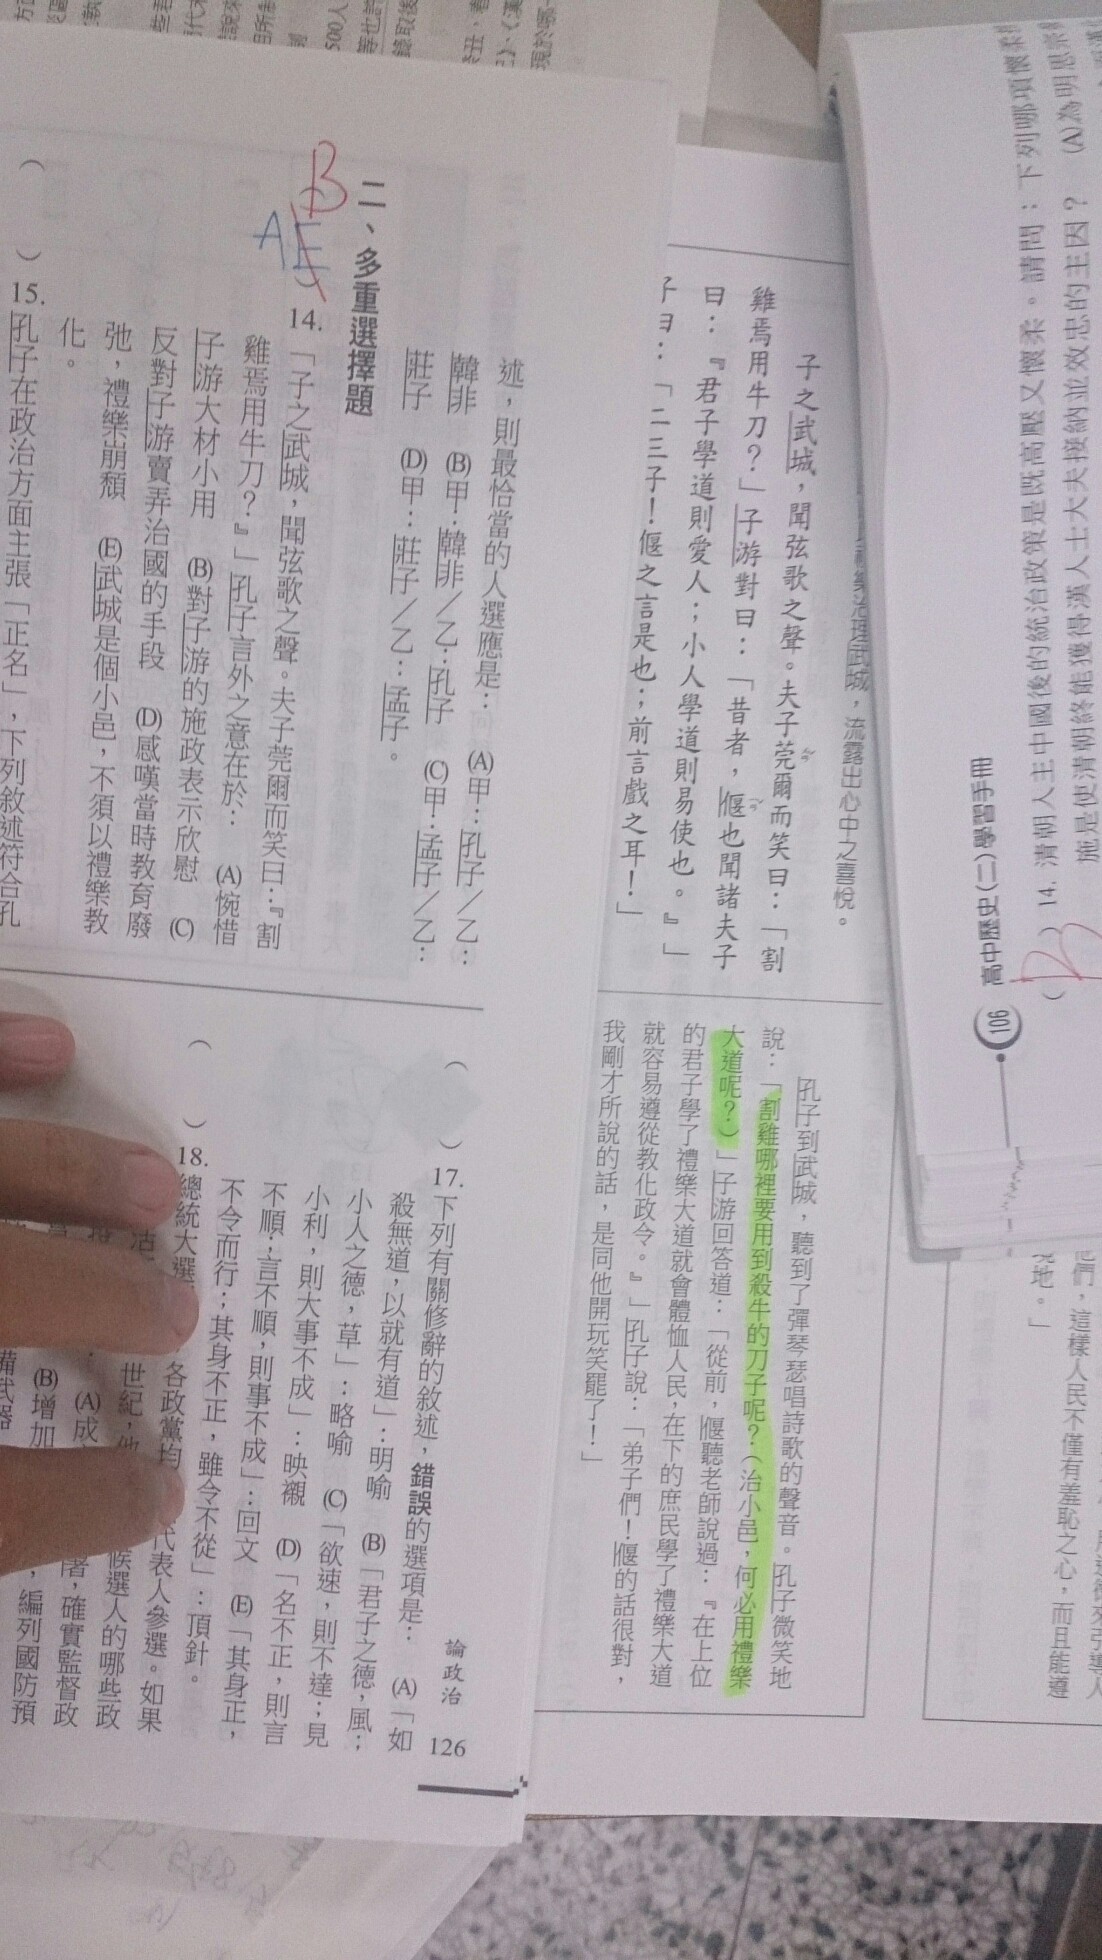 以禮樂治理武城，流露出心中之喜悅。
子之武城，聞弦歌之聲。夫子莞爾而笑曰：「割
雞焉用牛刀？」子游對曰：「昔者，偃也聞諸夫子
曰：『君子學道則愛人；小人學道則易使也。』」
子曰：「二三子！偃之言是也；前言戲之耳！」
孔子到武城，聽到了彈琴瑟唱詩歌的聲音。孔子微笑地
說：「割雞哪裡要用到殺牛的刀子呢？（治小邑，何必用禮樂
大道呢？）」子游回答道：「從前，偃聽老師說過：『在上位
的君子學了禮樂大道就會體恤人民，在下的庶民學了禮樂大道
就容易遵從教化政令。』」孔子說：「弟子們！偃的話很對，
我剛才所說的話，是同他開玩笑罷了！」
述，則最恰當的人選應是： (A)甲：孔子／乙：
韓非 (B)甲：韓非／乙：孔子 (C)甲：孟子／乙：
莊子 (D)甲：莊子／乙：孟子。
二、多重選擇題
B
AE
( ) 14. 「子之武城，聞弦歌之聲。夫子莞爾而笑曰：『割
雞焉用牛刀？』」孔子言外之意在於： (A)惋惜
子游大材小用 (B)對子游的施政表示欣慰 (C)
反對子游賣弄治國的手段 (D)感嘆當時教育廢
弛，禮樂崩頹 (E)武城是個小邑，不須以禮樂教
化。
( ) 15. 孔子在政治方面主張「正名」，下列敘述符合孔
論政治 126
( ) 17. 下列有關修辭的敘述，錯誤的選項是： (A)「如
殺無道，以就有道」：明喻 (B)「君子之德，風；
小人之德，草」：略喻 (C)「欲速，則不達；見
小利，則大事不成」：映襯 (D)「名不正，則言
不順；言不順，則事不成」：回文 (E)「其身正，
不令而行；其身不正，雖令不從」：頂針。
( ) 18. 總統大選 各政黨均 代表人參選。如果
世紀，他 候選人的哪些政
(A)成 署，確實監督政
(B)增加 ，編列國防預
備武器
106 高中歷史(二)學習手冊
( B ) 14. 清朝入主中國後的統治政策是既高壓又懷柔。請問：下列哪項懷柔
施是使清朝終能獲得漢人士大夫接納並效忠的主因？ (A)為明思宗
他們，這樣人民不僅有羞恥之心，而且能遵
境地。」